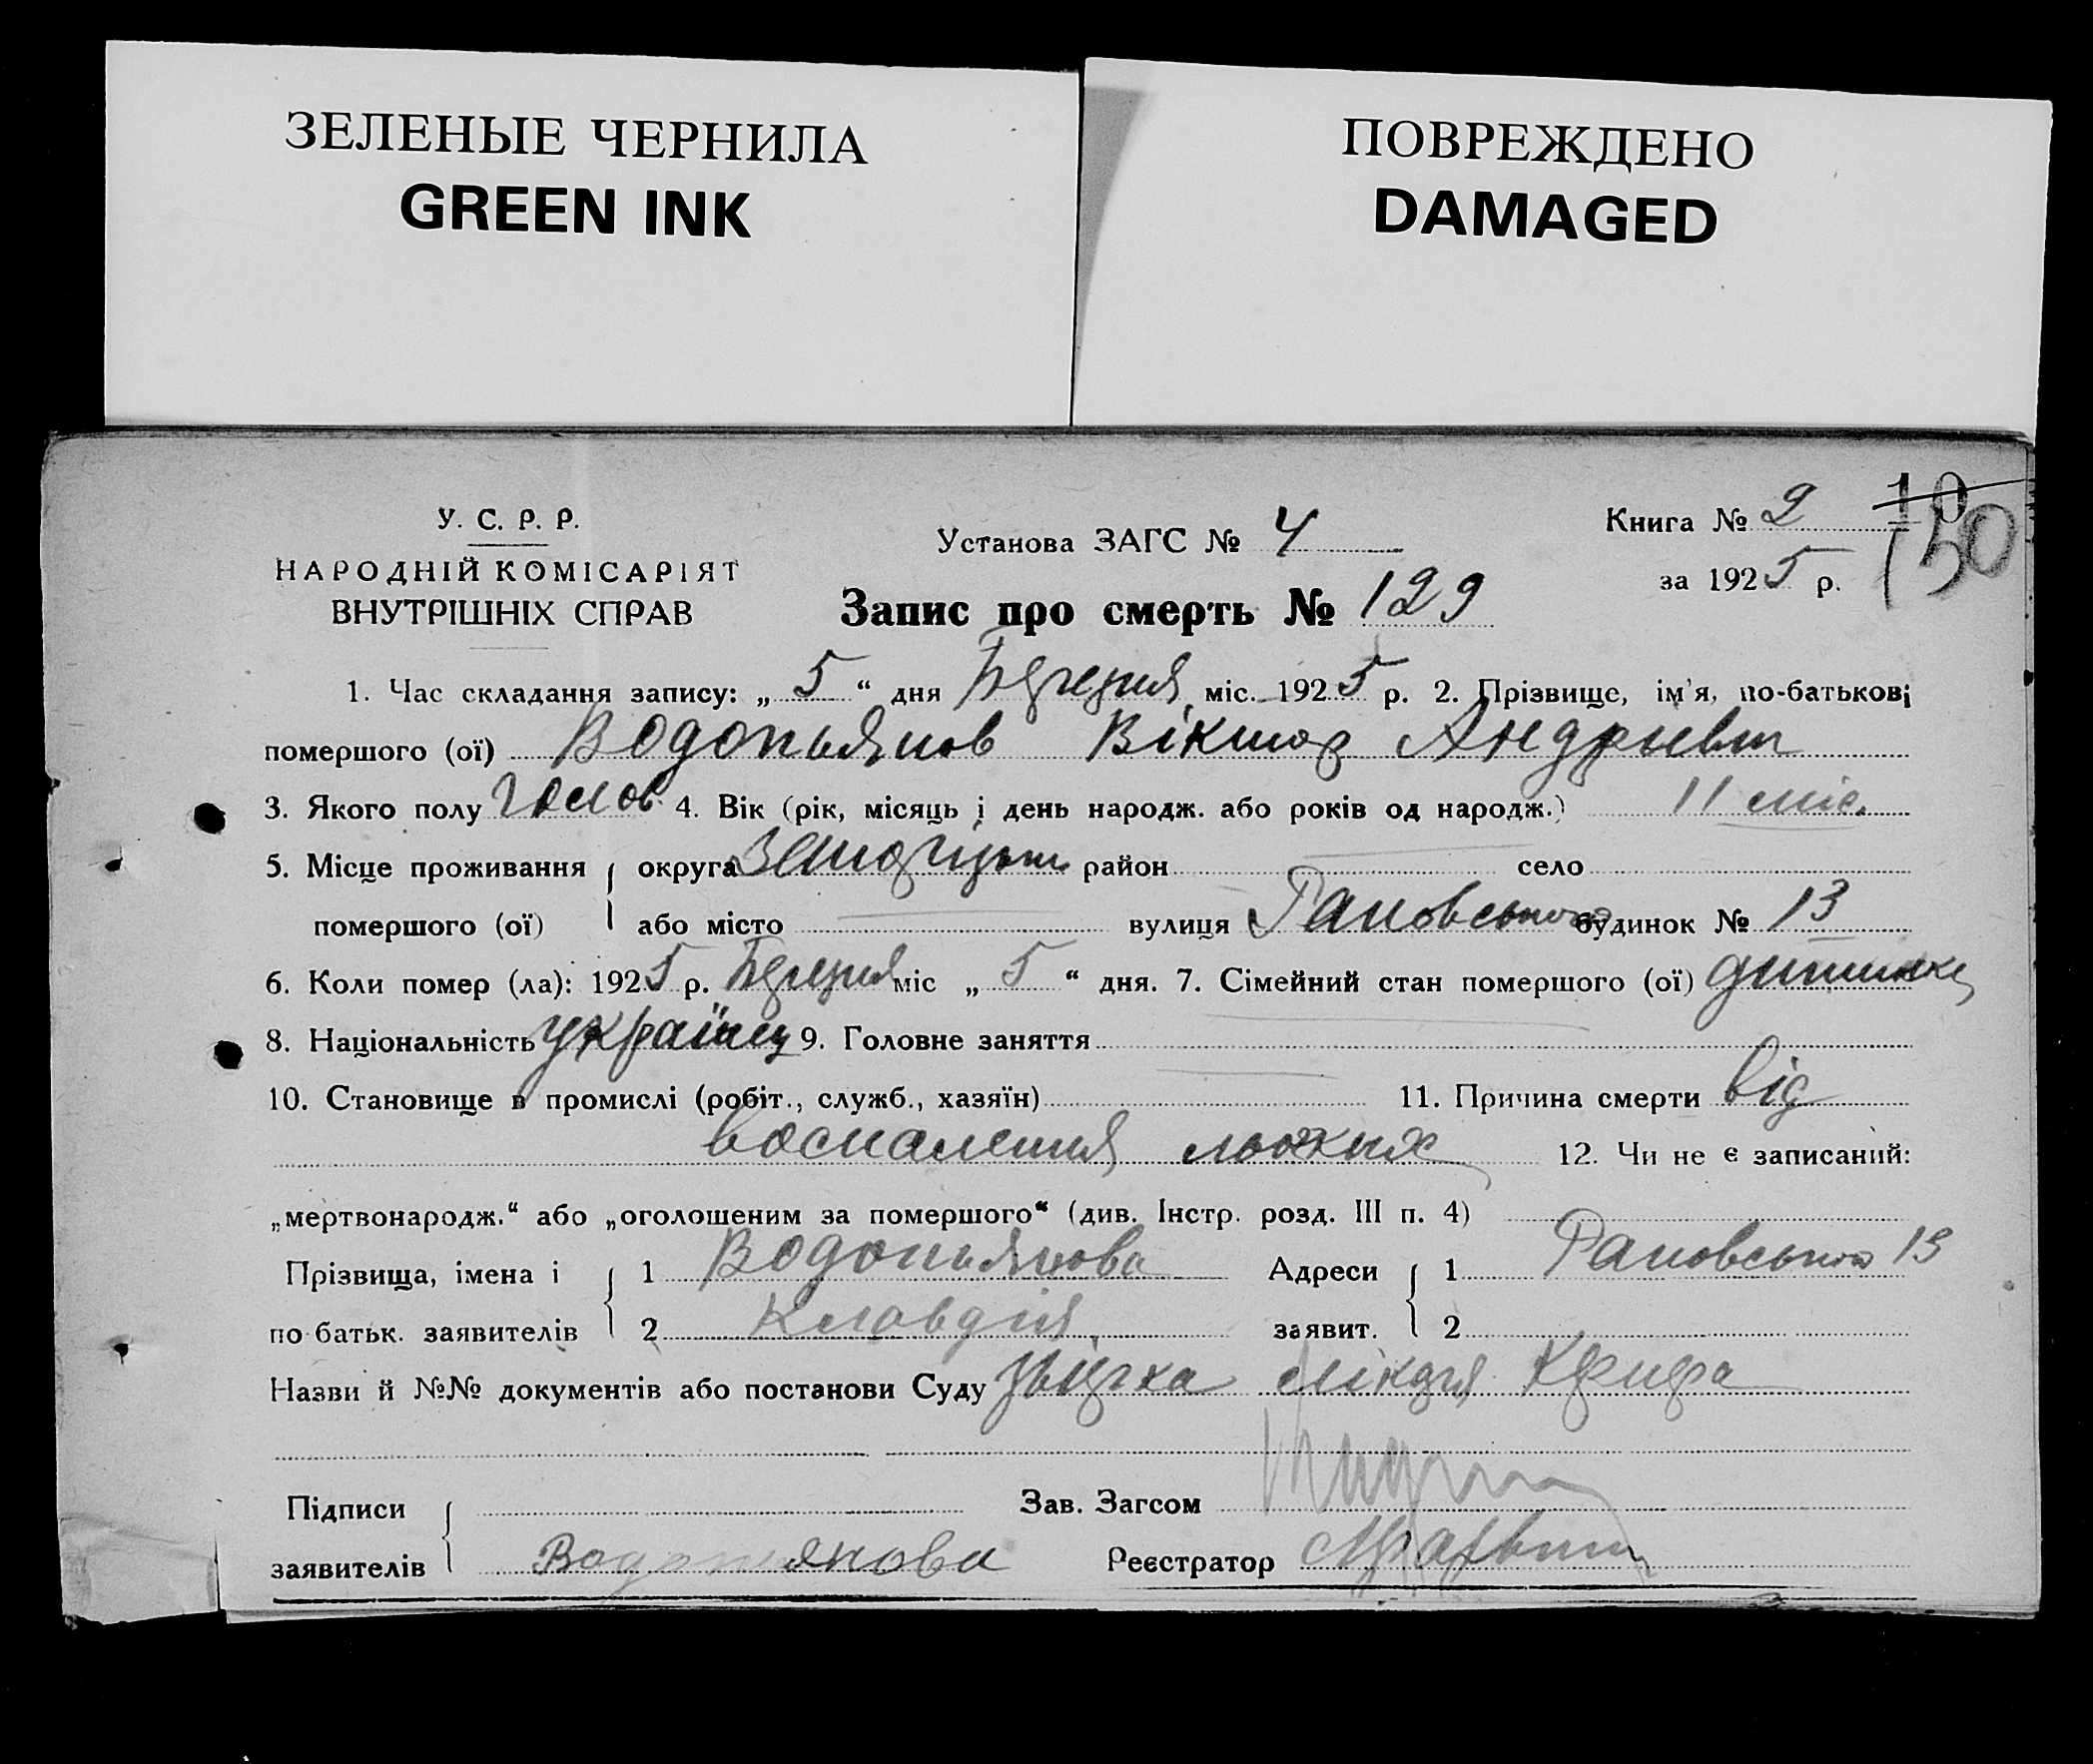 ЗЕЛЕНЫЕ ЧЕРНИЛА
GREEN INK
ПОВРЕЖДЕНО
DAMAGED
У. С. Р. Р.
НАРОДНІЙ КОМІСАРІЯТ
ВНУТРІШНІХ СПРАВ
Установа ЗАГС № 4
Запис про смерть № 129
Книга № 2
10
150
за 1925 р.
1. Час складання запису: „ 5 “ дня Березня міс. 1925 р. 2. Прізвище, ім'я, по-батькові
помершого (ої) Водопьянов Віктор
3. Якого полу 4. Вік (рік, місяць і день народж. або років од народж.) 11 міс.
5. Місце проживання округа район село
помершого (ої) або місто вулиця Раковського будинок № 13
6. Коли помер (ла): 1925 р. Березня міс „ 5 “ дня. 7. Сімейний стан помершого (ої)
8. Національність україн 9. Головне заняття
10. Становище в промислі (робіт., служб., хазяїн) 11. Причина смерти від
воспаления 12. Чи не є записаний:
„мертвонародж.“ або „оголошеним за помершого“ (див. Інстр. розд. III п. 4)
Прізвища, імена і 1 Водопьянова Адреси 1 Раковського 13
по батьк. заявителів 2 Клавдія заявит. 2
Назви й №№ документів або постанови Суду
Підписи Зав. Загсом
заявителів Водопьянова Реєстратор